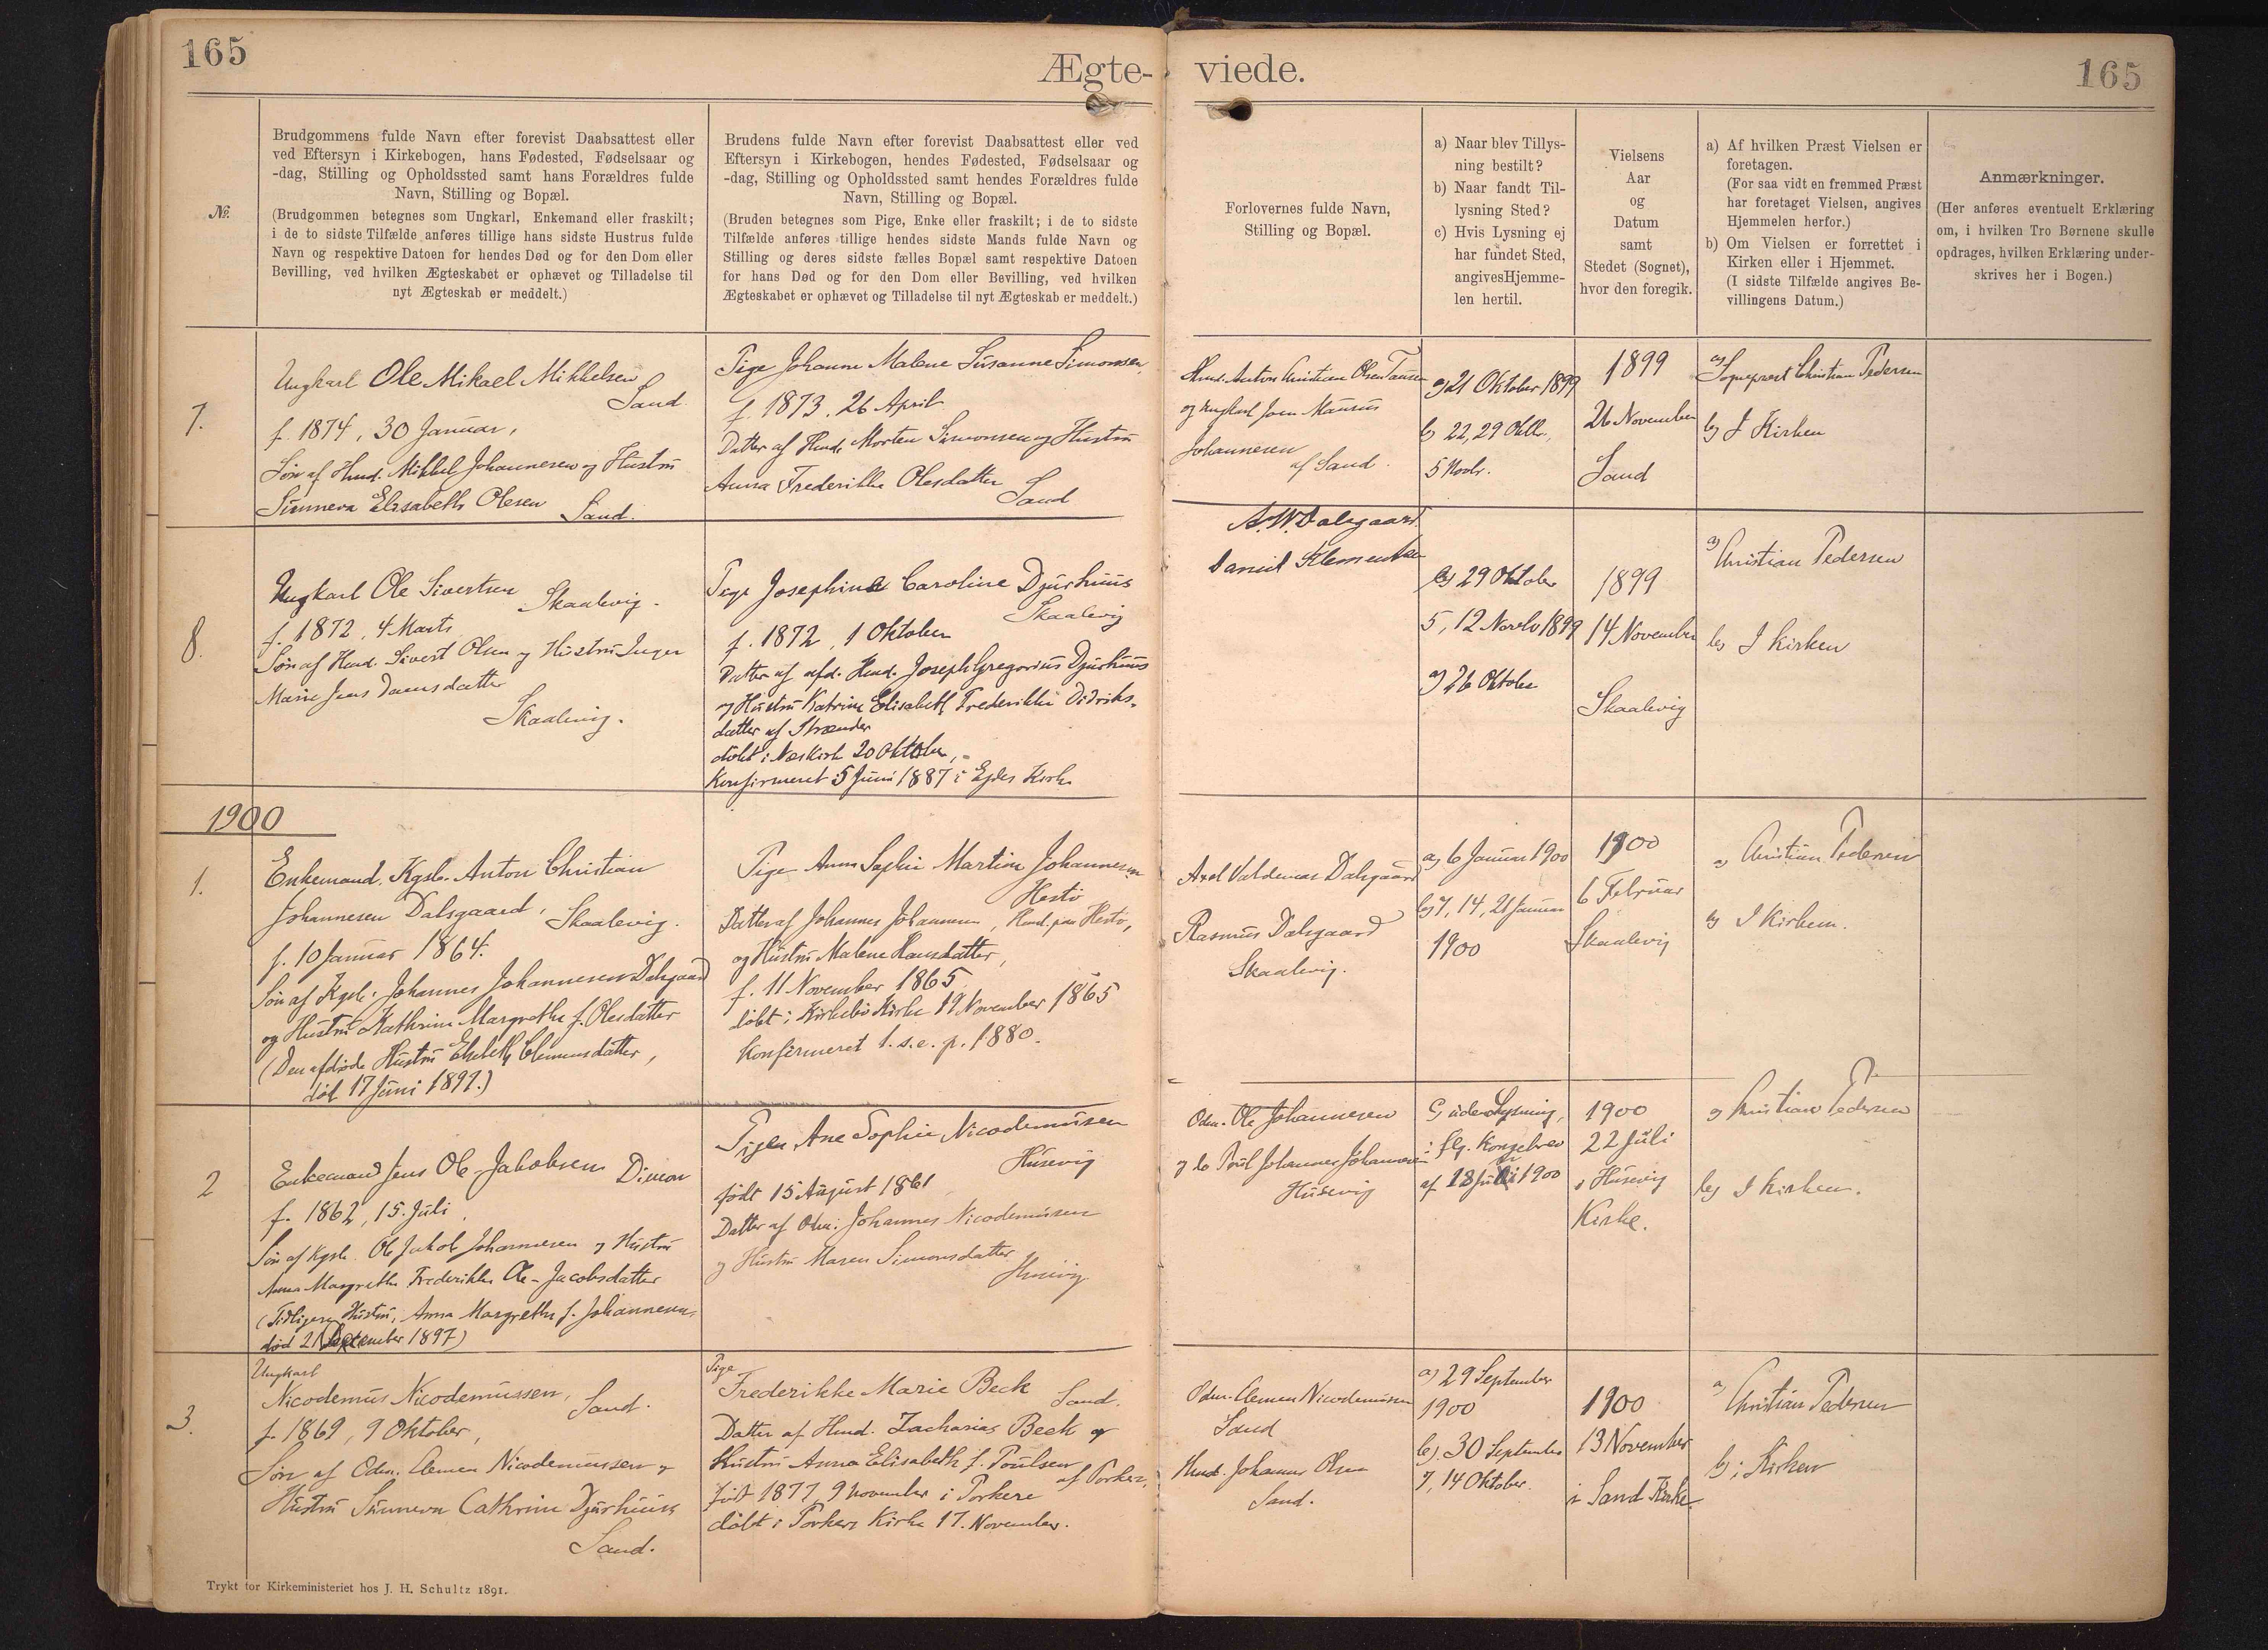 165
Ægte-
viede.
165
№.
Brudgommens fulde Navn efter forevist Daabsattest eller
ved Eftersyn i Kirkebogen, hans Fødested, Fødselsaar og
-dag, Stilling og Opholdssted samt hans Forældres fulde
Navn, Stilling og Bopæl.
(Brudgommen betegnes som Ungkarl, Enkemand eller fraskilt;
i de to sidste Tilfælde anføres tillige hans sidste Hustrus fulde
Navn og respektive Datoen for hendes Død og for den Dom eller
Bevilling, ved hvilken Ægteskabet er ophævet og Tilladelse til
nyt Ægteskab er meddelt.)
Brudens fulde Navn efter forevist Daabsattest eller ved
Eftersyn i Kirkebogen, hendes Fødested, Fødselsaar og
-dag, Stilling og Opholdssted samt hendes Forældres fulde
Navn, Stilling og Bopæl.
(Bruden betegnes som Pige, Enke eller fraskilt; i de to sidste
Tilfælde anføres tillige hendes sidste Mands fulde Navn og
Stilling og deres sidste fælles Bopæl samt respektive Datoen
for hans Død og for den Dom eller Bevilling, ved hvilken
Ægteskabet er ophævet og Tilladelse til nyt Ægteskab er meddelt.)
Forlovernes fulde Navn,
Stilling og Bopæl.
a) Naar blev Tillys-
ning bestilt?
b) Naar fandt Til-
lysning Sted?
c) Hvis Lysning ej
har fundet Sted,
angives Hjemme-
len hertil.
Vielsens
Aar
og
Datum
samt
Stedet (Sognet),
hvor den foregik.
a) Af hvilken Præst Vielsen er
foretagen.
(For saa vidt en fremmed Præst
har foretaget Vielsen, angives
Hjemmelen herfor.)
b) Om Vielsen er forrettet i
Kirken eller i Hjemmet.
(I sidste Tilfælde angives Be-
villingens Datum.)
Anmærkninger.
(Her anføres eventuelt Erklæring
om, i hvilken Tro Børnene skulle
opdrages, hvilken Erklæring under-
skrives her i Bogen.)
7.
Ungkarl Ole Mikael Mikkelsen
Sand
f. 1874, 30 Januar,
Søn af Hmd. Mikkel Johannesen og Hustru
Sunneva Elisabeth Olesen Sand.
Pige Johanne Malene Susanne Simonsen,
f. 1873. 26 April
Datter af Hmd. Morten Simonsen og Hustru
Anna Frederikke Olesdatter
Sand
Hmd. Anton Christian Olsen
og Ungkarl Joen
Johannesen
af Sand.
a) 21 Oktober 1899
b) 22, 29 Oktbr.,
5 Novbr.
1899
26 November
Sand
a) Sognepræst Christian Pedersen
b) I Kirken
8.
Ungkarl Ole Sivertsen
Skaalevig.
f. 1872, 4 Marts
Søn af Hmd. Sivert Olsen og Hustru Inger
Marie Jens Daensdatter
Skaalevig.
Pige Josephine Caroline Djurhuus
Skaalevig
f. 1872, 1 Oktober
Datter af afd. Hmd. Joseph Gregorius Djurhuus
og Hustru Katrine Elisabeth Frederikke Didriks-
datter af Strænder
døbt i Næs Kirke 20 Oktober,
Konfirmeret 5 Juni 1887 i Ejdes Kirke
A. W. Dalsgaard.
Daniel Klementsen
b) 29 Oktober
5, 12 Novbr 1899
a) 26 Oktober
1899
14 November
Skaalevig
a) Christian Pedersen
b) I Kirken
1900
1.
Enkemand, Kgsb. Anton Christian
Johannesen Dalsgaard, Skaalevig.
f. 10 Januar 1864.
Søn af Kgsb. Johannes Johannesen Dalsgaard
og Hustru Kathrine Margrethe f. Olesdatter
(Den afdøde Hustru Elsebeth Clemensdatter,
død 17 Juni 1891.)
Pige Anna Sophie Martine Johannesen
Hestø
Datter af Johannes Johannesen, Hmd. paa Hestø,
og Hustru Malene Hansdatter,
f. 11 November 1865
døbt i Kirkebø Kirke 19 November 1865
Konfirmeret 1. s. e. p. 1880.
Axel Valdemar Dalsgaard
Rasmus Dalsgaard
Skaalevig.
a) 6 Januar 1900
b) 7, 14, 21 Januar
1900
1900
6 Februar
Skaalevig
a) Christian Pedersen
b) I Kirken.
2
Enkemand Jens Ole-Jakobsen Dimon
f. 1862, 15. Juli
Søn af Kgsb. Ole Jakob Johannesen og Hustru
Anna Margrethe Frederikke Ole-Jacobsdatter
(Tidligere Hustru, Anna Margrethe f. Johannesen,
død 21 September 1897)
Pigen Ane Sophie Nicodemusen
Husevig
født 15 August 1861
Datter af Odm. Johannes Nicodemusen
og Hustru Maren Simonsdatter
Husevig
Odm. Ole Johannesen
og do Poul Johannes Johannesen
Husevig
C) uden Lysning,
i flg. Kongebrev
af 18 Juli 1900
1900
22 Juli
i Husevig
Kirke.
a) Christian Pedersen
b) I Kirken.
3.
Ungkarl
Nicodemus Nicodemussen,
Sand.
f. 1869, 9 Oktober,
Søn af Odm. Clemen Nicodemussen og
Hustru Sunneva Cathrine Djurhuus
Sand.
Pige
Frederikke Marie Beck
Sand.
Datter af Hmd. Zacharias Beck og
Hustru Anna Elisabeth f. Poulsen
af Porkere,
født 1877, 9 November i Porkere
døbt i Porkere Kirke 17. November.
Odm. Clemen Nicodemusen
Sand
Hmd. Johannes Olsen
Sand.
a) 29 September
1900
b). 30 September
7, 14 Oktober.
1900
13 November
i Sand Kirke.
a) Christian Pedersen
b) i Kirken
Trykt for Kirkeministeriet hos J. H. Schultz 1891.